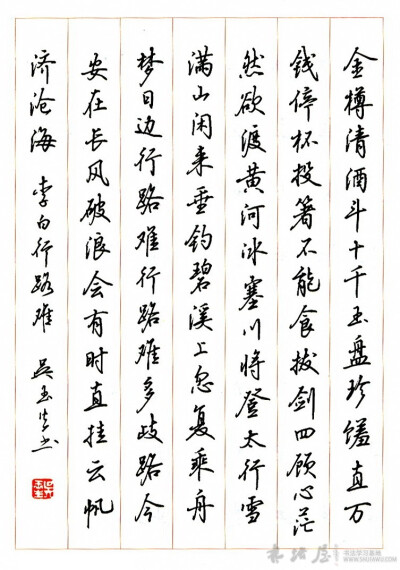 金樽清酒斗十千玉盘珍馐直万
钱停杯投箸不能食拔剑四顾心茫
然欲渡黄河冰塞川将登太行雪
满山闲来垂钓碧溪上忽复乘舟
梦日边行路难行路难多歧路今
安在长风破浪会有时直挂云帆
济沧海 李白行路难 吴玉生书
书法屋
书法学习基地
WWW.SHUFAWU.COM